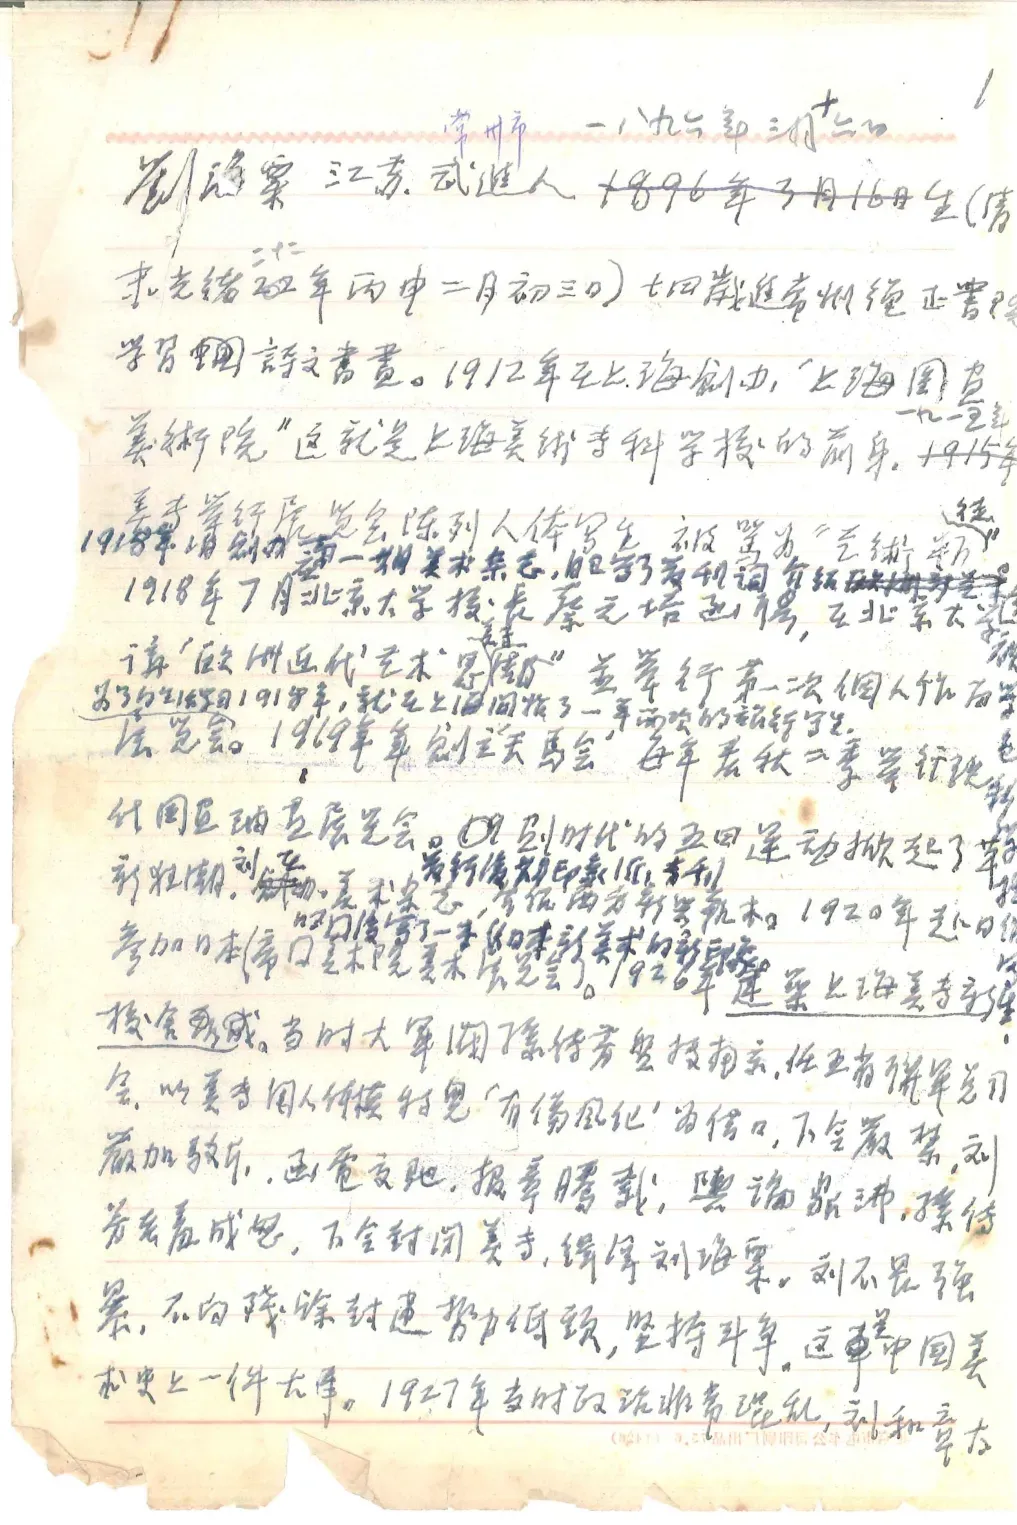 1
常州市 一八九六年三月十六日
劉海粟 江苏武进人 1896年3月16日生(清
末光绪二十二年丙申二月初三日)十四歳進常州绳正書院
学习 詩文書畫。1912年在上海創办,“上海图画
一九一五年
美術院”这就是上海美術专科学校的前身。1915年
美专举行展览会陈列人体写生 被罵为“艺術叛徒”。
1918年 创办 第一期美术杂志,自写了发刊詞介绍
1918年7月北京大学校长蔡元培函 在北京大学
講“欧洲近代艺术思潮” 並举行第一次個人作品
1918年,就在上海開始了一年两次的旅行写生。
展览会。1919年年創立天馬会 每年春秋二季举行现
代国画油画展览会。 划时代的五四運动掀起了革
新狂潮,刘在 美术杂志,介绍西方新兴艺术。1920年赴日
参加日本帝国美术院美术展览会。1926年建築上海美专新
回国後写了一本《日本新美术的新印象》
校舍 成。当时大軍閥孫傳芳盘据南京,任五省聯軍总司
令,以美专用人体模特兒‘有傷風化’为借口,下令嚴禁,刘
嚴加駁斥,函電交馳,报章騰載,輿論鼎沸,孫傳
芳老羞成怒,下令封闭美专,緝拿刘海粟。刘不畏強
暴,不向殘餘封建势力低頭,坚持斗争。这是中国美
术史上一件大事。1927年当时政治非常混乱,刘和章太